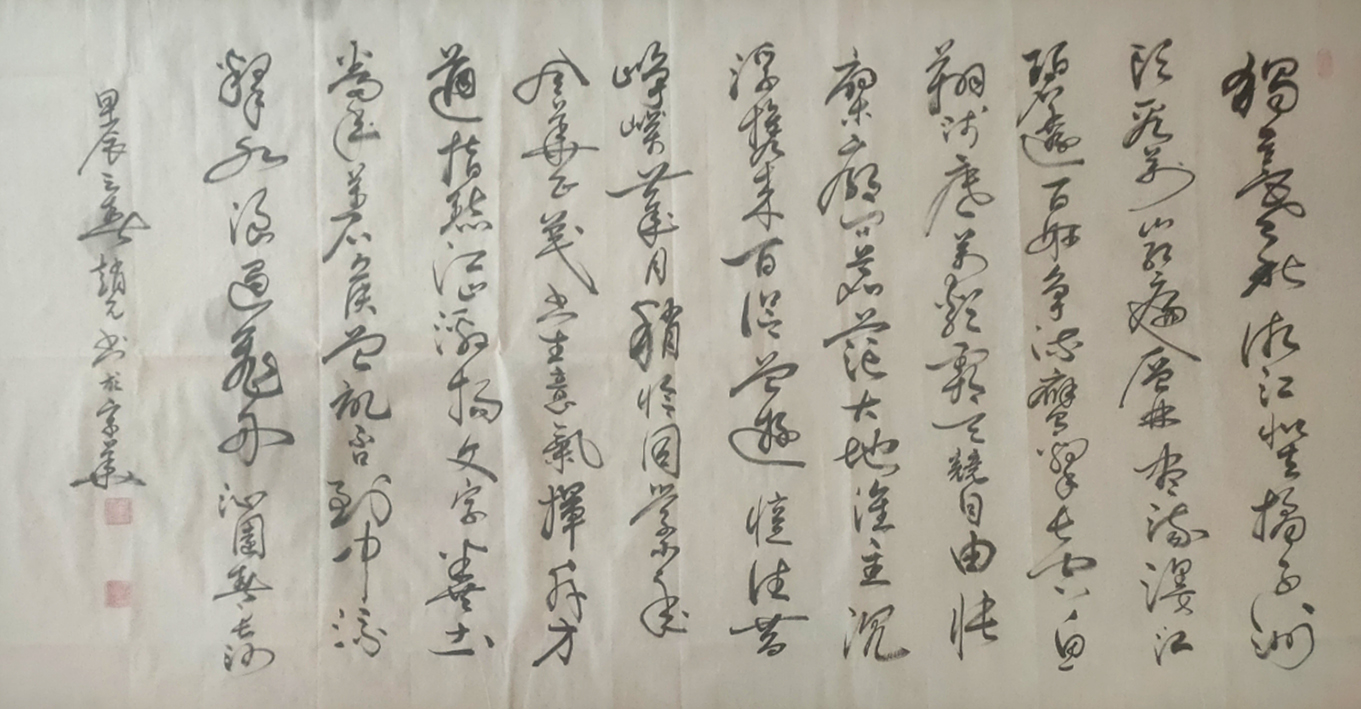 獨立寒秋湘江北去橘子洲
頭看萬山紅遍層林盡染漫江
碧透百舸爭流鷹擊長空魚
翔淺底萬類霜天競自由悵
寥廓問蒼茫大地誰主沉
浮攜來百侶曾遊憶往昔
崢嶸歲月稠恰同學少年
風華正茂书生意氣揮斥方
遒指點江山激揚文字糞土
當年萬户侯曾記否到中流
擊水浪遏飛舟沁園春長沙
甲辰三春趙元书於京華